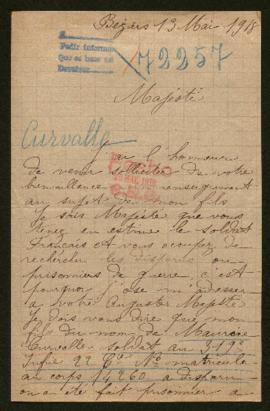 Bezićrs 13 Mai 1918
A
Pedir informes
Que se hace en
72257
Majesté
Curvalle
J'ai l'honneur
de venir solliciter de votre
bienveillance renseignement
au sujet de mon fils
Je sais Majesté que vous
tenez en estime le soldat
Français et vous occupez de
rechercher les disparus ou
prisonniers de guerre, c'est
pourquoi j'ose m'adresser
a votre Auguste Majesté
Je dois vous dire que mon
fils du nom de Maurice
Curvalle soldat au 319e
Infie 22 Cie No matricule
au corps 14260 a disparu
ou a été fait prisonnier a